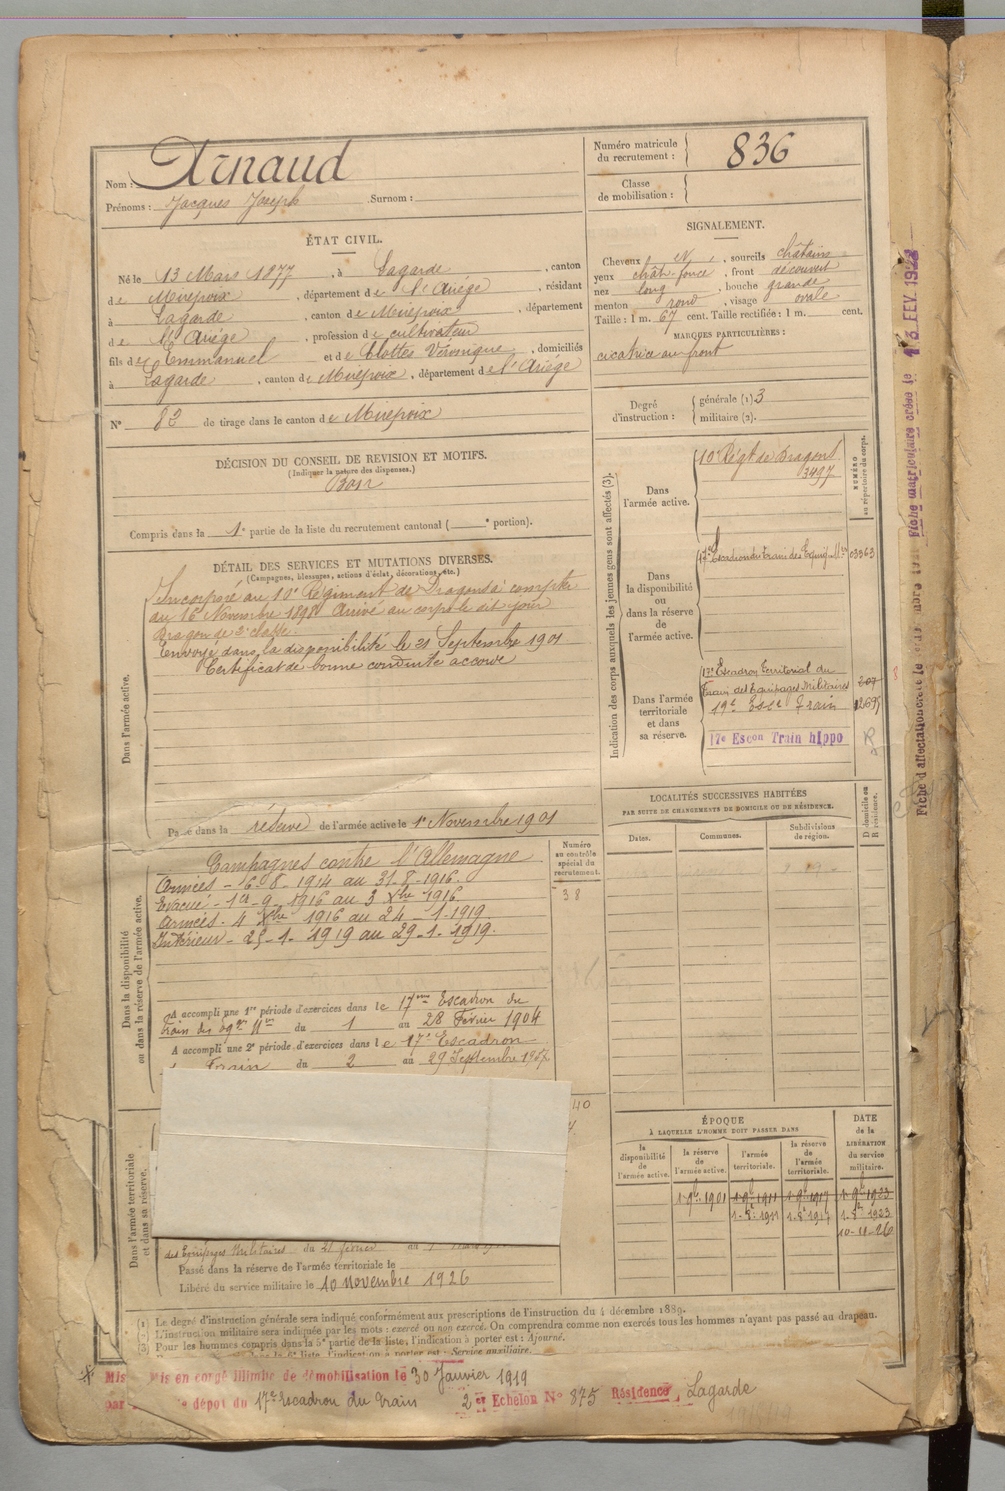 Nom : Arnaud
Prénoms : Jacques Joseph Surnom :
Numéro matricule du recrutement : 836
Classe de mobilisation :
ÉTAT CIVIL.
Né le 13 Mars 1877, à Lagarde, canton
de Mirepoix, département de l'Ariège, résidant
à Lagarde, canton de Mirepoix, département
de l'Ariège, profession de cultivateur
fils de Emmanuel et de Clottes Véronique, domiciliés
à Lagarde, canton de Mirepoix, département de l'Ariège
N° 82 de tirage dans le canton de Mirepoix
SIGNALEMENT.
Cheveux N, sourcils châtains
yeux chât. foncé, front découvert
nez long, bouche grande
menton rond, visage ovale
Taille : 1 m. 67 cent. Taille rectifiée : 1 m. cent.
MARQUES PARTICULIÈRES :
cicatrice au front
Degré d'instruction : générale (1) 3
militaire (2).
DÉCISION DU CONSEIL DE REVISION ET MOTIFS.
(Indiquer la nature des dispenses.)
Bon
Compris dans la 1e partie de la liste du recrutement cantonal ( e portion).
DÉTAIL DES SERVICES ET MUTATIONS DIVERSES.
(Campagnes, blessures, actions d'éclat, décorations, etc.)
Dans l'armée active.
Incorporé au 10e Régiment de Dragons à compter
du 16 Novembre 1898 Arrivé au corps le dit jour
Dragon de 2e classe.
Envoyé dans la disponibilité le 21 Septembre 1901
Certificat de bonne conduite accordé
Passé dans la réserve de l'armée active le 1er Novembre 1901
Indication des corps auxquels les jeunes gens sont affectés (3).
NUMÉRO au répertoire du corps.
Dans l'armée active.
10e Régt de Dragons
3497
Dans la disponibilité ou dans la réserve de l'armée active.
17e Escadron du Train des Equig. Mres 03363
Dans l'armée territoriale et dans sa réserve.
17e Escadron Territorial du
Train des Equipages Militaires 207
19e Escr Train 12695
17e Escon Train hippo
Dans la disponibilité ou dans la réserve de l'armée active.
Numéro au contrôle spécial du recrutement.
38
Campagnes contre l'Allemagne
Armées - 6-8-1914 au 31-8-1916.
Evacué - 1er-9-1916 au 3 Xbre 1916.
Armées. 4 Xbre 1916 au 24-1-1919.
Intérieur - 25-1-1919 au 29-1-1919.
A accompli une 1re période d'exercices dans le 17me Escadron du
train des Eqges Mres du 1 au 28 Février 1904
A accompli une 2e période d'exercices dans le 17e Escadron
Train du 2 au 29 Septembre 1907
40
Dans l'armée territoriale et dans sa réserve.
des Equipages Militaires du 21 février au
Passé dans la réserve de l'armée territoriale le
Libéré du service militaire le 10 novembre 1926
LOCALITÉS SUCCESSIVES HABITÉES
PAR SUITE DE CHANGEMENTS DE DOMICILE OU DE RÉSIDENCE.
D domicile ou R résidence.
Dates. Communes. Subdivisions de région.
ÉPOQUE
À LAQUELLE L'HOMME DOIT PASSER DANS
DATE de la LIBÉRATION du service militaire.
la disponibilité de l'armée active. la réserve de l'armée active. l'armée territoriale. la réserve de l'armée territoriale.
1-9bre 1901 1-9bre 1911 1-9bre 1917 1-9bre 1923
1-8e 1911 1-8e 1917 1-8e 1923
10-11-26
(1) Le degré d'instruction générale sera indiqué conformément aux prescriptions de l'instruction du 4 décembre 1889.
(2) L'instruction militaire sera indiquée par les mots : exercé ou non exercé. On comprendra comme non exercés tous les hommes n'ayant pas passé au drapeau.
(3) Pour les hommes compris dans la 5e partie de la liste, l'indication à porter est : Ajourné.
Service auxiliaire.
Mis en congé illimité de démobilisation le 30 Janvier 1919
par le dépot du 17e Escadron du Train 2er Echelon N° 875 Résidence Lagarde
Fiche matriculaire créée le 16 FEV. 192
Fiche d'affectation